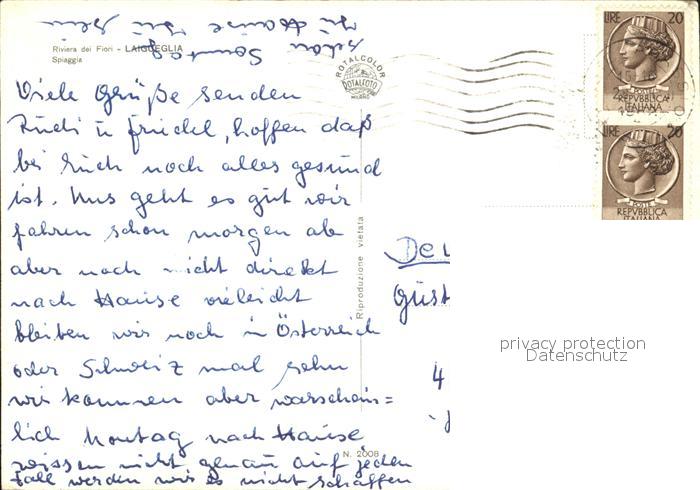 Riviera dei Fiori - LAIGUEGLIA
Spiaggia
ROTALCOLOR
ROTALFOTO
MILANO
LIRE 20
POSTE
REPVBBLICA
ITALIANA
LIRE 20
POSTE
REPVBBLICA
ITALIANA
Viele Grüße senden
Rudi u Friedel, hoffen daß
bei Euch noch alles gesund
ist. Uns geht es gut wir
fahren schon morgen ab
aber noch nicht direkt
nach Hause vieleicht
bleiben wir noch in Österreich
oder Schweiz mal sehn
wir kommen aber warschein=
lich Montag nach Hause
wissen nicht genau auf jeden
Fall werden wir es nicht schaffen
schon Sonntag
zu Hause zu sein
Riproduzione vietata
N. 2008
De
Gust
4
privacy protection
Datenschutz